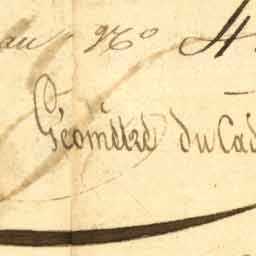 au No 4
Géomètre du Cad